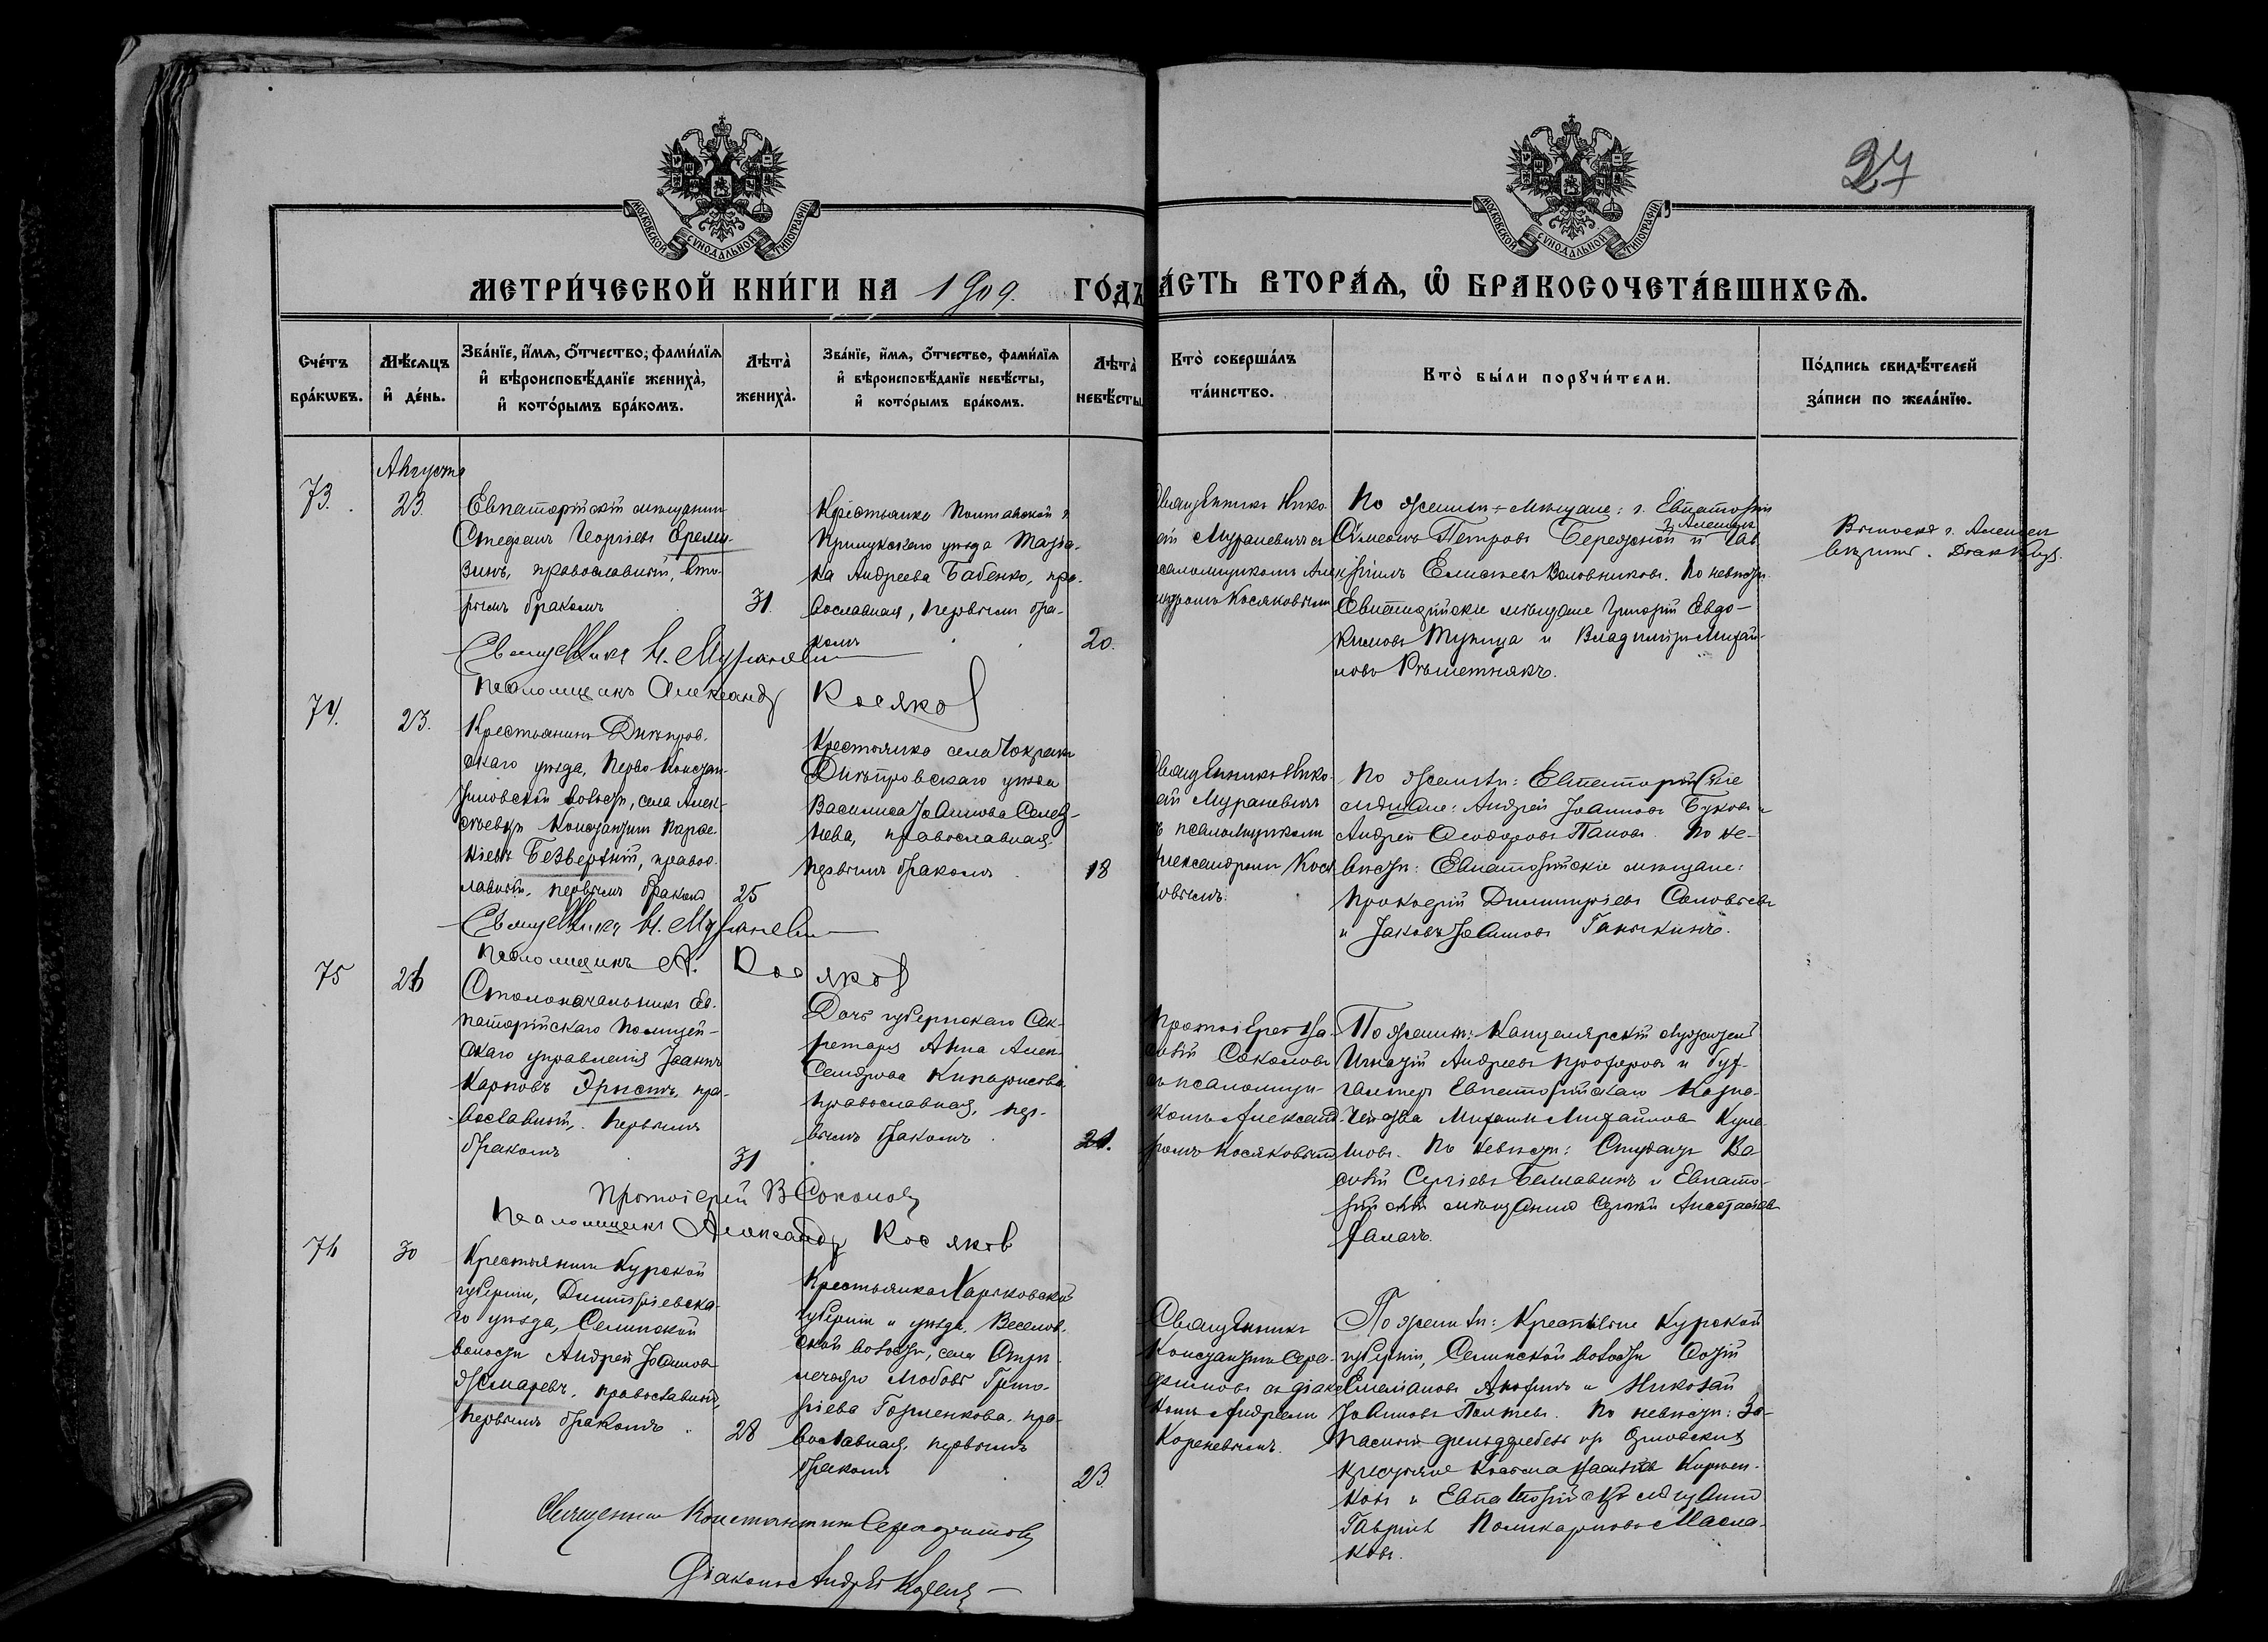 27
МОСКОВСКОЙ СѴНОДАЛЬНОЙ ТИПОГРАФІИ
МОСКОВСКОЙ СѴНОДАЛЬНОЙ ТИПОГРАФІИ
МЕТРИ́ЧЕСКОЙ КНИ́ГИ НА 1909. ГО́ДЪ
А́СТЬ ВТОРА́Ѧ, Ѽ БРАКОСОЧЕТА́ВШИХСѦ.
Сче́тъ бра́кѡвъ.
Мѣ́сѧцъ и҆ де́нь.
Зва́нїе, и҆́мѧ, ѻ҆́тчество, фами́лїѧ
и҆ вѣроисповѣ́данїе жениха̀,
и҆ кото́рымъ бра́комъ.
Лѣта̀ жениха̀.
Зва́нїе, и҆́мѧ, ѻ҆́тчество, фами́лїѧ
и҆ вѣроисповѣ́данїе невѣ́сты,
и҆ кото́рымъ бра́комъ.
Лѣта̀ невѣ́сты
Кто̀ соверша́лъ
та́инство.
Кто̀ бы́ли порꙋчи́тели.
По́дпись свидѣ́телей
за́писи по жела́нїю.
Августа
73.
23.
Евпаторійскій мѣщанинъ
Стефанъ Георгіевъ Ереми-
зинъ, православный, вто-
рымъ бракомъ
31.
Крестьянка Полтавской г.
Прилукскаго уѣзда Марѳа-
на Андреева Бабенко, пра-
вославная, первымъ бра-
комъ
20.
Священникъ Нико-
ай Мураневичъ съ
псаломщикомъ Алек
андромъ Косяковымъ
По женихѣ - мѣщане: г. Евпаторіи
Симеонъ Петровъ Бережной и г. Алешекъ Гав
ріилъ Елисѣевъ Воловниковъ. По невѣстѣ
Евпаторійскіе мѣщане Григорій Евдо-
кимовъ Тупица и Владиміръ Михай-
ловъ Рѣшетнякъ.
Священникъ Н. Мураневичъ
Псаломщикъ Александръ Косяковъ
74.
23.
Крестьянинъ Днѣпров-
скаго уѣзда, Перво-Констан-
тиновской волости, села Алек-
сѣевки Константинъ Парѳе-
ніевъ Безверхій, правос-
лавный, первымъ бракомъ
25
Крестьянка села Чокракъ
Днѣпровскаго уѣзда
Василиса Іоаннова Селез-
нева, православная
первымъ бракомъ
18
Священникъ Нико-
ай Мураневичъ
ъ псаломщикомъ
Александромъ Кося
овымъ.
По женихѣ: Евпаторійскіе
мѣщане: Андрей Іоанновъ Буковъ и
Андрей Ѳеодоровъ Пановъ. По не-
вѣстѣ: Евпаторійскіе мѣщане:
Прокофій Димитріевъ Соловьевъ
и Іаковъ Іоанновъ Ганькинъ.
Священникъ Н. Мураневичъ
Псаломщикъ А. Косяковъ
75
26
Столоначальникъ Ев-
паторійскаго Полицей-
скаго управленія Іоаннъ
Карповъ Эрнстъ, пра-
вославный, первымъ
бракомъ
31
Дочь губернскаго Сек-
ретаря Анна Алек-
сандрова Кипарисова
православная, пер-
вымъ бракомъ
21.
Протоіерей Ва-
силій Соколовъ
съ псаломщи-
комъ Александ-
ромъ Косяковымъ
По женихѣ: Канцелярскій служитель
Игнатій Андреевъ Прохоровъ и бух-
галтеръ Евпаторійскаго Казна-
чейства Михаилъ Михайловъ Куле-
шовъ. По невѣстѣ: Студентъ Ва
силій Сергіевъ Беллавинъ и Евпато-
рійскій мѣщанинъ Сергѣй Анастасіевъ
Халачъ.
Протоіерей В Соколовъ
Псаломщикъ Александръ Косяковъ
76
30
Крестьянинъ Курской
губерніи, Димитріевска-
го уѣзда, Селинской
волости Андрей Іоанновъ
Жмаревъ, православный,
первымъ бракомъ
28
Крестьянка Харьковской
губерніи и уѣзда, Веселов-
ской волости, села
Любовь Григо-
ріева Горленкова, пра-
вославная, первымъ
бракомъ
23.
Священникъ
Константинъ Сера-
фимовъ съ діако
номъ Андреемъ
Кореневымъ.
По женихѣ: Крестьяне Курской
губерніи, Селинской волости
Емеліановъ и Николай
Іоанновъ Полтевъ. По невѣстѣ: За-
пасный фельдфебель изъ Орловскихъ
крестьянъ Козьма Кирѣен-
ковъ и Евпаторійскій мѣщанинъ
Гавріилъ Поликарповъ Масла-
ковъ.
Священникъ Константинъ Серафимовъ
Діаконъ Андрей Кореневъ